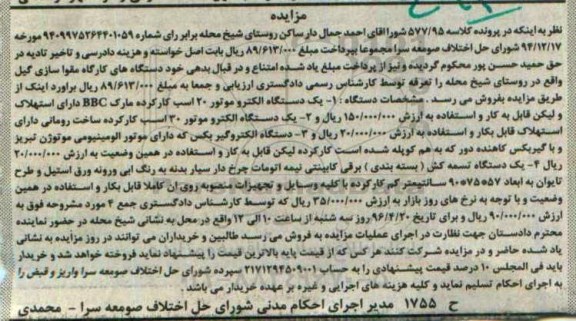 مزایده
نظر به اینکه در پرونده کلاسه ۵۷۷/۹۵ شورا آقای احمد جمال دار ساکن روستای شیخ محله برابر رای شماره ۹۴۰۹۹۷۵۲۶۴۴۰۱۰۵۹ مورخه
۹۴/۱۲/۱۷ شورای حل اختلاف صومعه سرا مجموعا بپرداخت مبلغ ۸۹/۶۱۳/۰۰۰ ریال بابت اصل خواسته و هزینه دادرسی و تاخیر تادیه در
حق حمید حسن پور محکوم گردیده و نیز از پرداخت مبلغ یاد شده امتناع و در قبال بدهی خود دستگاه های کارگاه مقوا سازی گیل
واقع در روستای شیخ محله را تعرفه توسط کارشناس رسمی دادگستری ارزیابی و جمعا به مبلغ ۸۹/۶۱۳/۰۰۰ ریال براورد اینک از
طریق مزایده بفروش می رسد . مشخصات دستگاه : ۱- یک دستگاه الکترو موتور ۲۰ اسب کارکرده مارک BBC دارای استهلاک
ولیکن قابل به کار و استفاده به ارزش ۱۵۰/۰۰۰/۰۰۰ ریال و ۲- یک دستگاه الکترو موتور ۳۰ اسب کارکرده ساخت رومانی دارای
استهلاک قابل بکار و استفاده به ارزش ۲۰/۰۰۰/۰۰۰ ریال و ۳- دستگاه الکتروگیر بکس که دارای موتور الومینیومی موتوژن تبریز
و با گیربکس کاهنده دور که به هم کوپله شده است کارکرده لیکن قابل به کار و استفاده در همین وضعیت به ارزش ۲۰/۰۰۰/۰۰۰
ریال ۴- یک دستگاه تسمه کش ( بسته بندی ) برقی کابینتی نیمه اتومات چرخ دار سیار بدنه به رنگ ابی ورونه ورق استیل و طرح
تایوان به ابعاد ۵۷*۷۵*۹۰ سانتیمتر کم کارکرده با کلیه وسایل و تجهیزات منصوبه روی ان کاملا قابل بکار و استفاده در همین
وضعیت و با توجه به نرخ های روز بازار به ارزش ۳۵/۰۰۰/۰۰۰ ریال که توسط کارشناس دادگستری جمع ۴ مورد مشروحه فوق به
ارزش ۹۰/۰۰۰/۰۰۰ ریال و برای تاریخ ۹۶/۴/۲۰ روز سه شنبه از ساعت ۱۰ الی ۱۲ واقع در محل به نشانی شیخ محله در حضور نماینده
محترم دادستان جهت نظارت در اجرای عملیات مزایده به فروش می رسد طالبین و خریداران می توانند در روز مزایده به نشانی
یاد شده حاضر و در مزایده شرکت کنند هر کس که از قیمت پایه بالاترین قیمت را پیشنهاد نماید فروخته خواهد شد و خریدار
باید فی المجلس ۱۰ درصد قیمت پیشنهادی را به حساب ۲۱۷۱۲۹۴۵۰۹۰۰۱ سپرده شورای حل اختلاف صومعه سرا واریز و قبض را
به اجرای احکام تسلیم نماید و کلیه هزینه های اجرایی و غیره بر عهده خریدار می باشد .
ح ۱۷۵۵ مدیر اجرای احکام مدنی شورای حل اختلاف صومعه سرا - محمدی